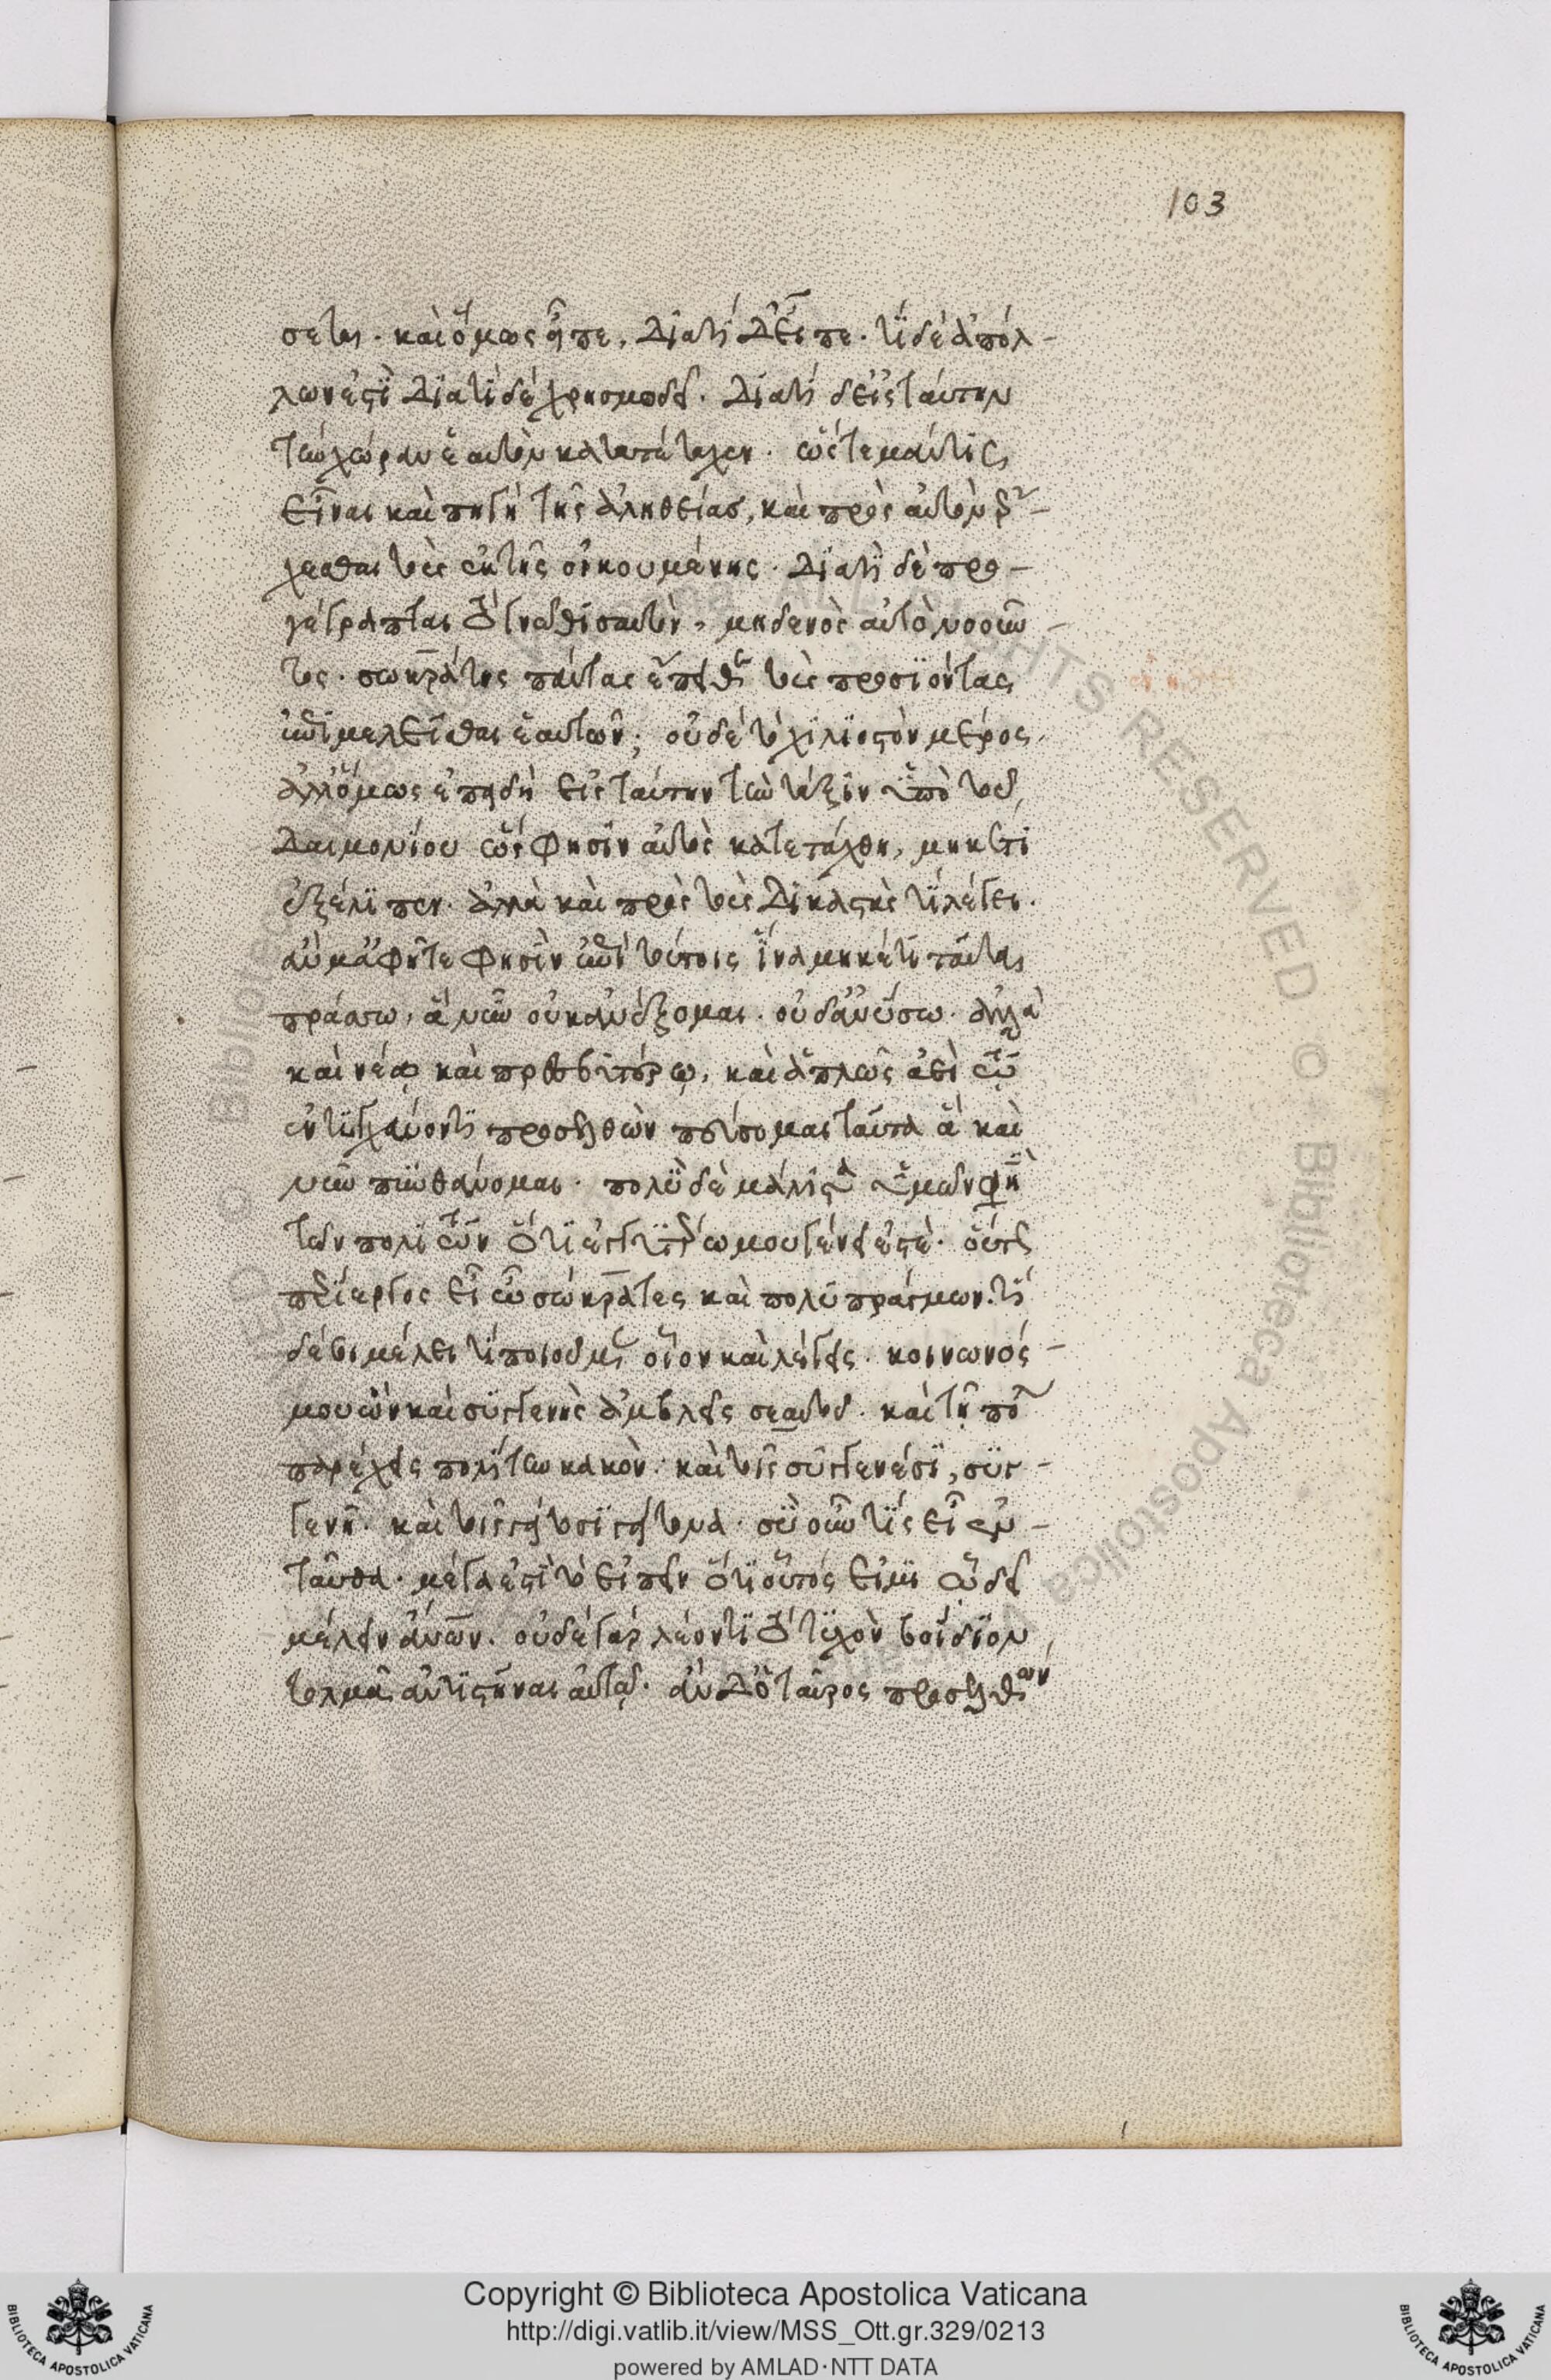 103
σεται. καὶ ὅμως εἶπε, Διατί δ' εἶπε. τί δὲ ἀπόλ-
λων ἐστί Διατί δὲ χρησμωδεῖ. Διατί δ' εἰς ταύτην
τὴν χώραν ἑαυτὸν κατατέταχεν. ὥστε μάντις
εἶναι καὶ πηγὴ τῆς ἀληθείας, καὶ πρὸς αὐτὸν ἔρ-
χεσθαι τοὺς ἐκ τῆς οἰκουμένης. Διατί δὲ προ-
γέγραπται τὸ γνῶθι σαυτόν, μηδενὸς αὐτὸ νοοῦν-
τος. σωκράτης πάντας ἔπειθε τοὺς προσϊόντας
ἐπιμελεῖσθαι ἑαυτῶν; οὐδὲ τὸ χιλιοστὸν μέρος.
ἀλλ' ὅμως ἐπειδὴ εἰς ταύτην τὴν τάξιν ὑπὸ τοῦ
Δαιμονίου ὥς φησιν αὐτὸς κατετάχθη, μηκέτι
ἐξέλιπεν. ἀλλὰ καὶ πρὸς τοὺς Δικαστὰς τί λέγει.
ἄν με ἀφῆτε φησὶν ἐπὶ τούτοις ἵνα μηκέτι ταῦτα
πράσσω, ἃ νῦν οὐκ ἀνέξομαι. οὐδ' ἀνήσω. ἀλλὰ
καὶ νέῳ καὶ πρεσβυτέρῳ, καὶ ἁπλῶς ἀεὶ τῷ
ἐντυγχάνοντι προσελθὼν πεύσομαι ταῦτα ἃ καὶ
νῦν πυνθάνομαι. πολὺ δὲ μάλιστα ὑμῶν φησὶ
τῶν πολιτῶν ὅτι ἐγγυτέρω μου γένει ἐστέ. οὕτως
περίεργος εἶ ὦ σώκρατες καὶ πολυπράγμων. τί
δέ σοι μέλει τί ποιοῦμεν οἷον καὶ λέγεις. κοινωνός
μου ὢν καὶ συγγενὴς ἀμελεῖς σεαυτοῦ. καὶ τῇ πό
παρέχεις πολίτην κακόν. καὶ τοῖς συγγενέσι, συγ-
γενῆ. καὶ τοῖς γείτοσι γείτονα. σὺ οὖν τίς εἶ ἐν-
ταῦθα. μέγα ἐστὶ τὸ εἰπεῖν ὅτι οὗτός εἰμι ᾧ δεῖ
μέλειν ἀνων. οὐδὲ γὰρ λέοντι τὸ τυχὸν βοΐδιον
τολμᾷ ἀντιστῆναι αὐτῷ. ἂν δ' ὁ ταῦρος προσελθὼν
Copyright © Biblioteca Apostolica Vaticana
http://digi.vatlib.it/view/MSS_Ott.gr.329/0213
powered by AMLAD·NTT DATA